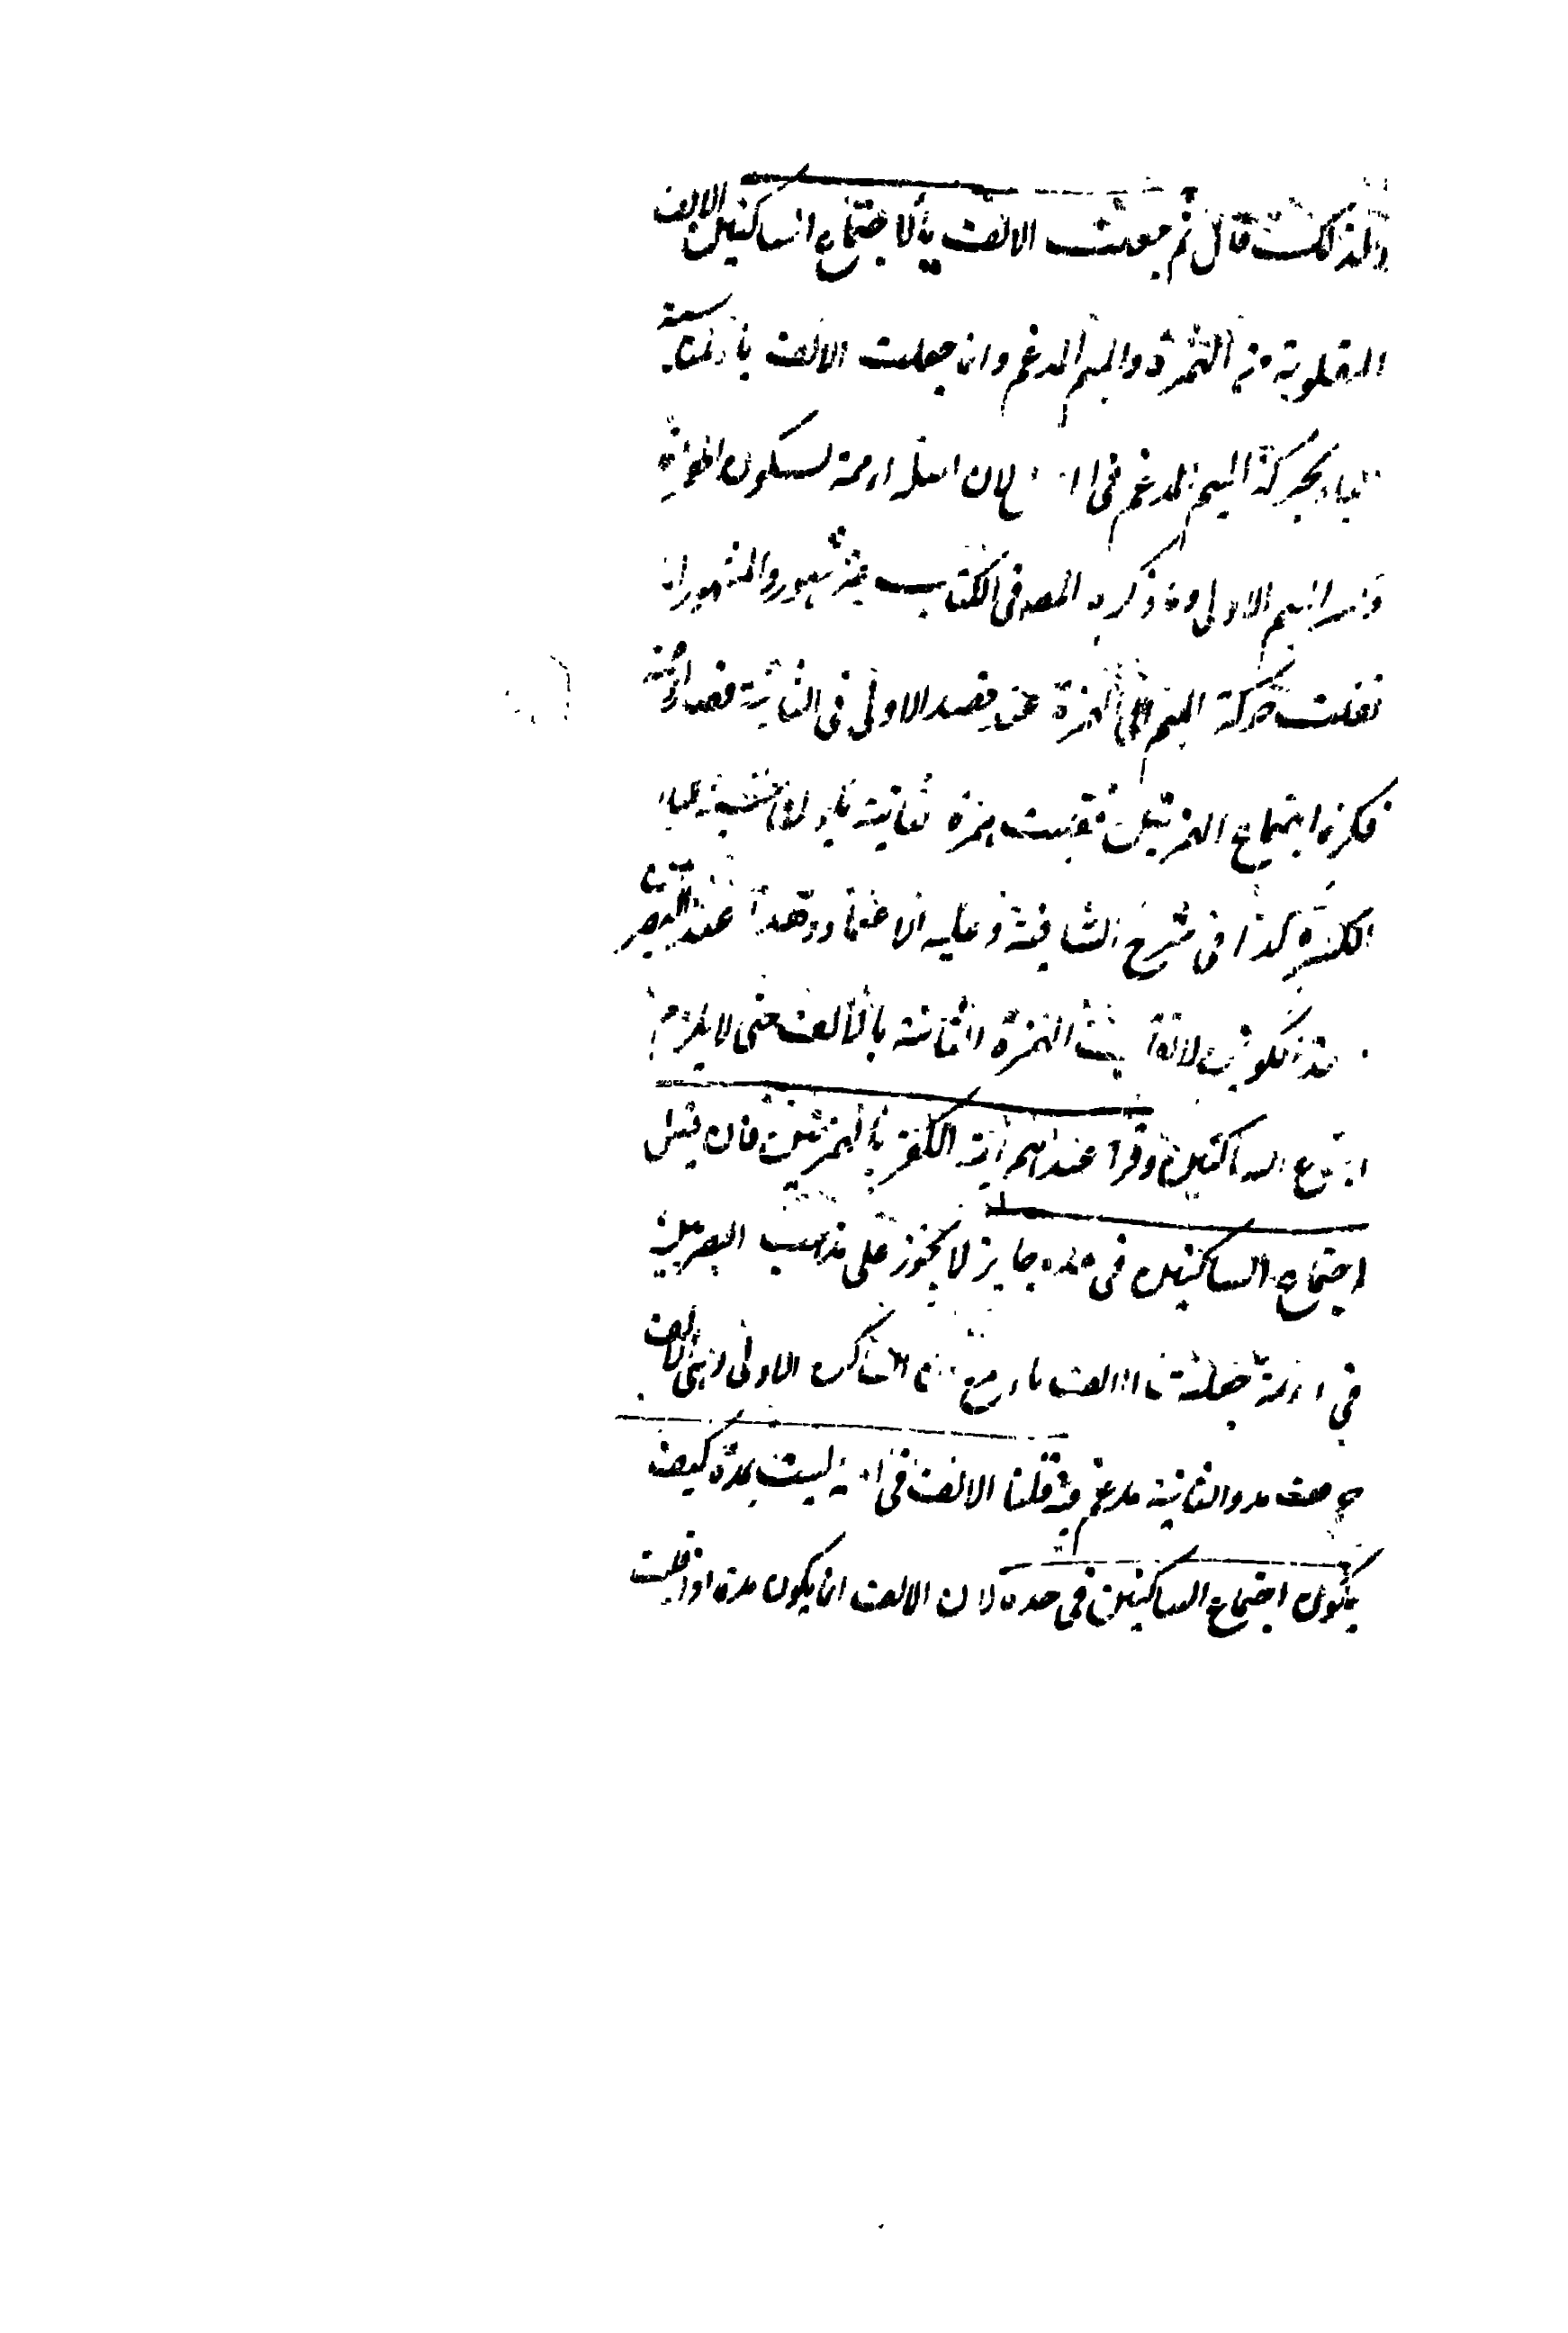 ولذلك قال ثم جعلت الالف يا لاجتماع الساكنين الالف
المقلوبة من الهمزة والميم المدغم وانما جعلت الالف يا لمناسبة
الياء بحركة الميم المدغم في لان اصله اءممة لسكون الهمزة
وكسر الميم الاولى وما ذكره المصـ في الكتاب غير مشهور والمشهور ان
نقلت حركة الميم الى الهمزة عند قصد الاولى في الثانية فصار اءمة
فكرهوا اجتماع الهمزتين فقلبت همزة ثانية ياء
الكسرة كذا في شرح الشافية وعليه الاعتماد وهذا عند البصريين
الكوفيين لا تقلب الهمزة الثانية بالالف حتى لا يلزم
اجتماع الساكنين وقرأ عندهم ائمة الكفر بالهمزتين فان قيل
اجتماع الساكنين في حده جايز لا يجوز على مذهب البصريين
في ائمة جعلت الالف ياء مع ان الساكن الاولى الالف
حرف مد والثانية مدغم فيه قلنا الالف في ائمة ليست بمدة كيف
يكون اجتماع الساكنين في حده لان الالف انما يكون مدة اذا قلبت